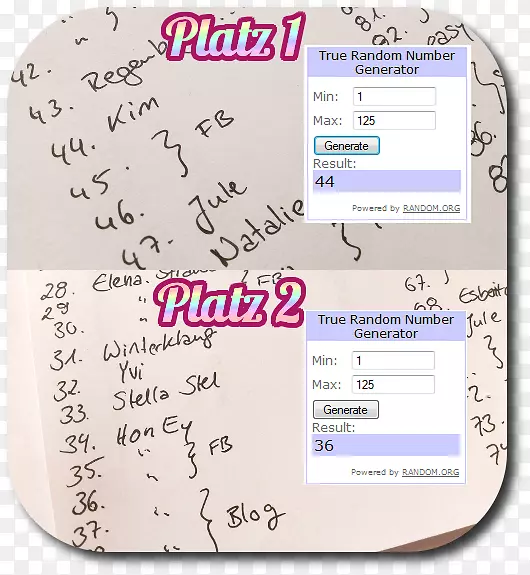 Platz 1
True Random Number
Generator
Min: 1
Max: 125
Generate
Result:
44
Powered by RANDOM.ORG
81.
82. easy
42.
43. Regenb
44. Kim
45. } FB
46.
47. Jule
Natalie
86.
Platz 2
True Random Number
Generator
Min: 1
Max: 125
Generate
Result:
36
Powered by RANDOM.ORG
28. Elena.
29 " } FB
30. "
31. Winterklang
32. Yvi
33. Stella Stel
34. Hon Ey
35. " } FB
36. "
37. " } Blog
67.
68.
Jule
73.